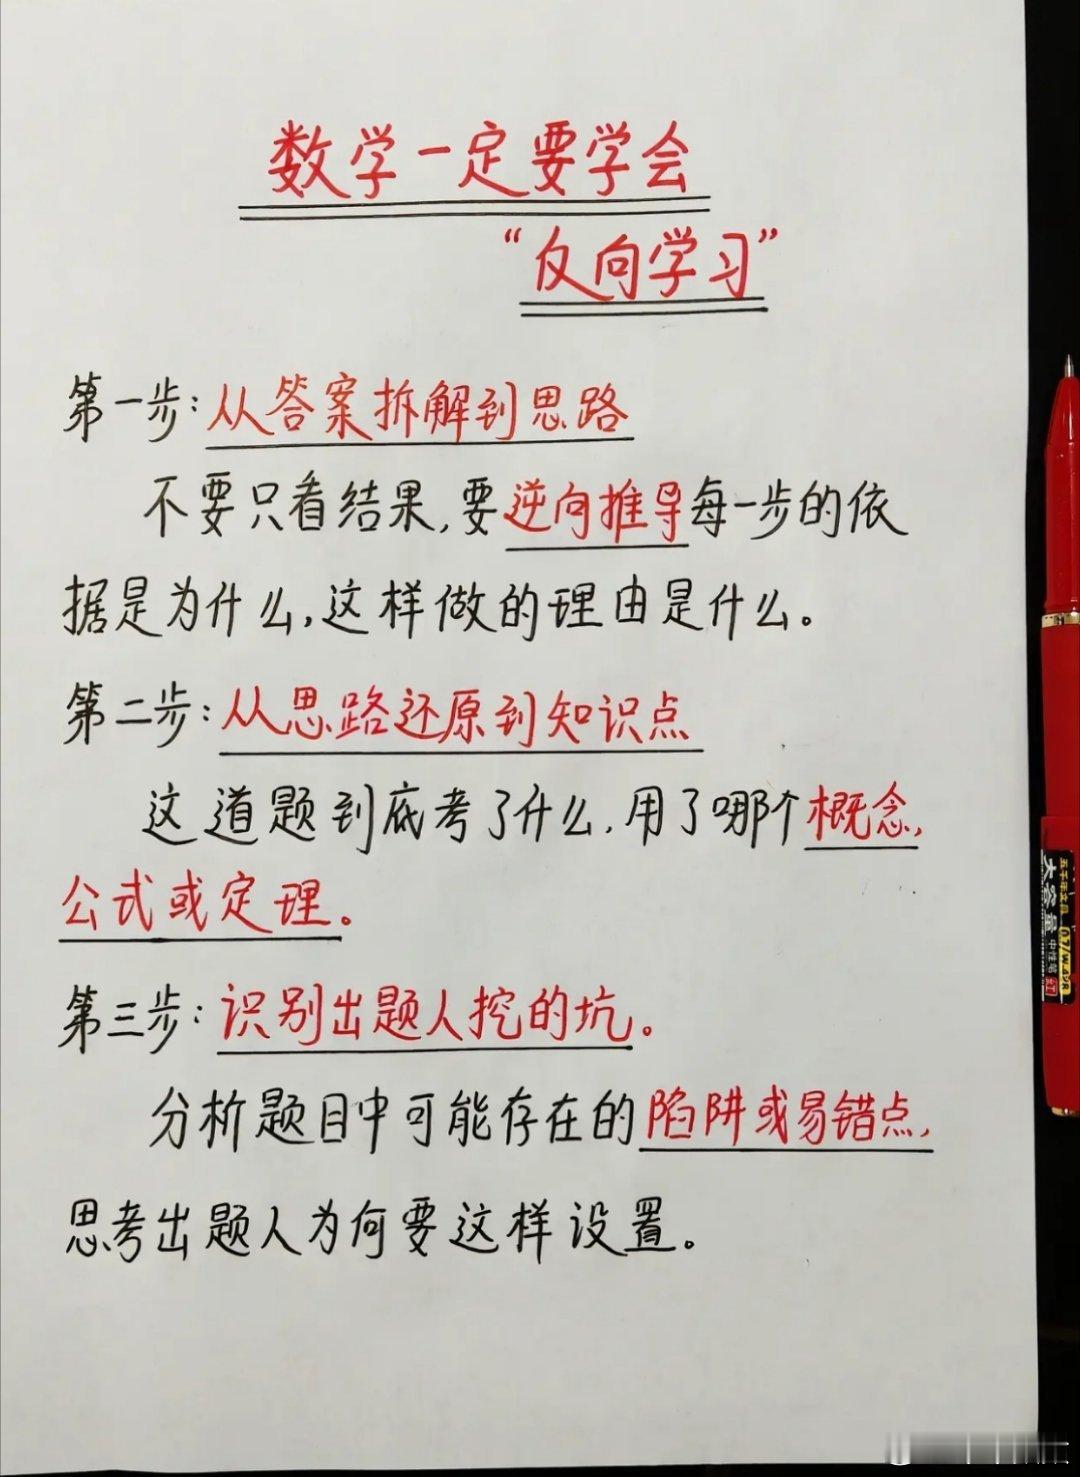 数学一定要学会
“反向学习”
第一步:从答案拆解到思路
不要只看结果,要逆向推导每一步的依
据是为什么,这样做的理由是什么。
第二步:从思路还原到知识点
这道题到底考了什么,用了哪个概念,
公式或定理。
第三步:识别出题人挖的坑。
分析题目中可能存在的陷阱或易错点,
思考出题人为何要这样设置。
五千年文具
大容量
中性笔
红